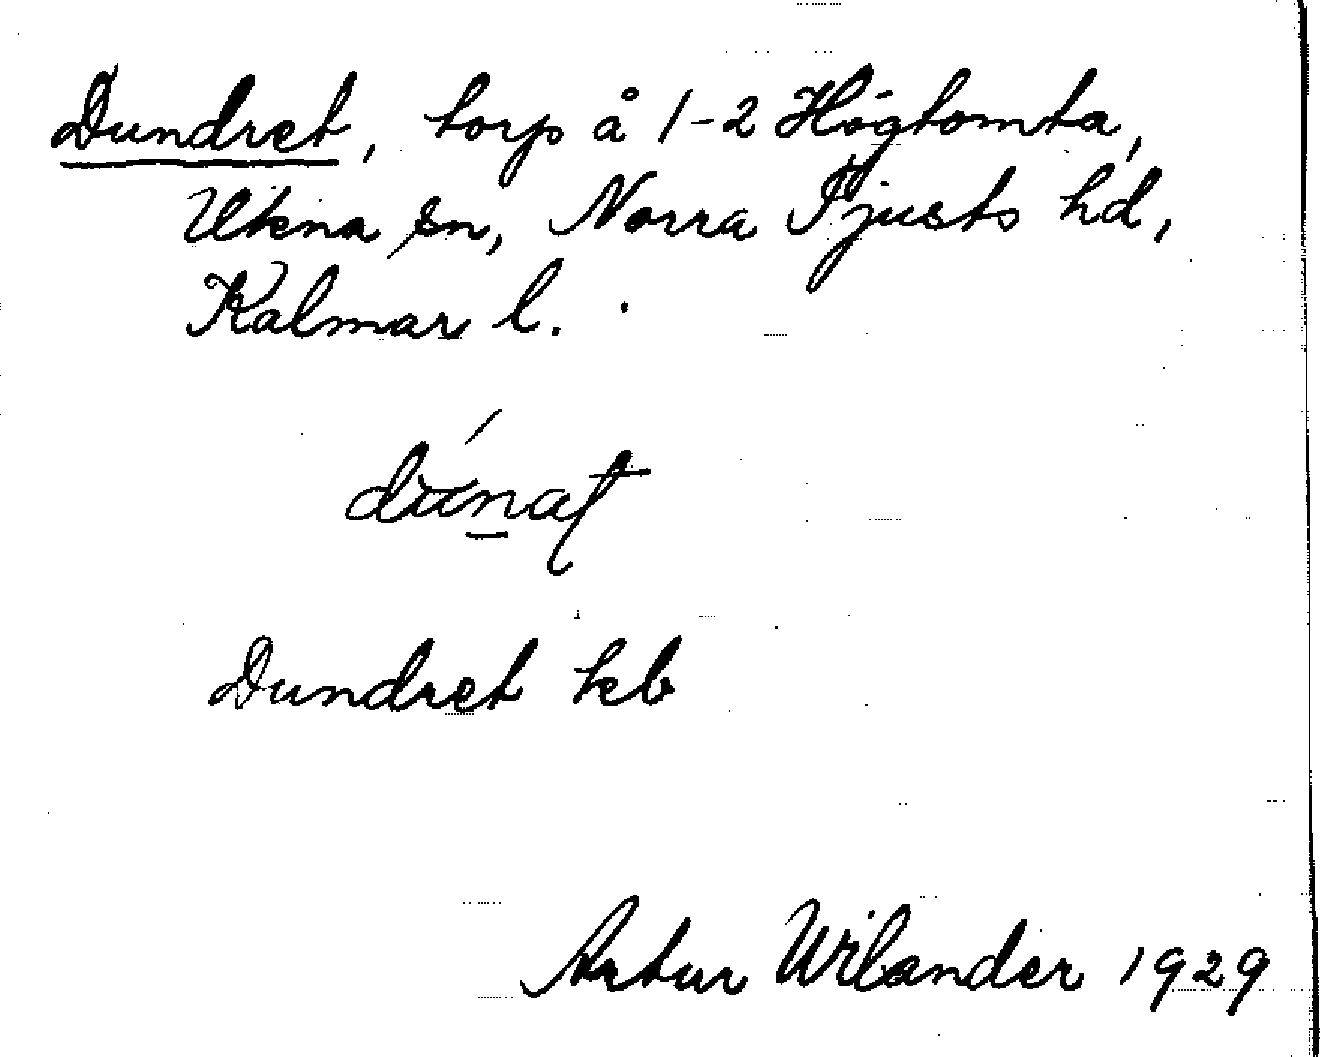 Dundret, torp å 1-2 Högtomta,
Ukna sn, Norra Tjusts hd,
Kalmar l.
Dundret kb
Artur Wilander 1929